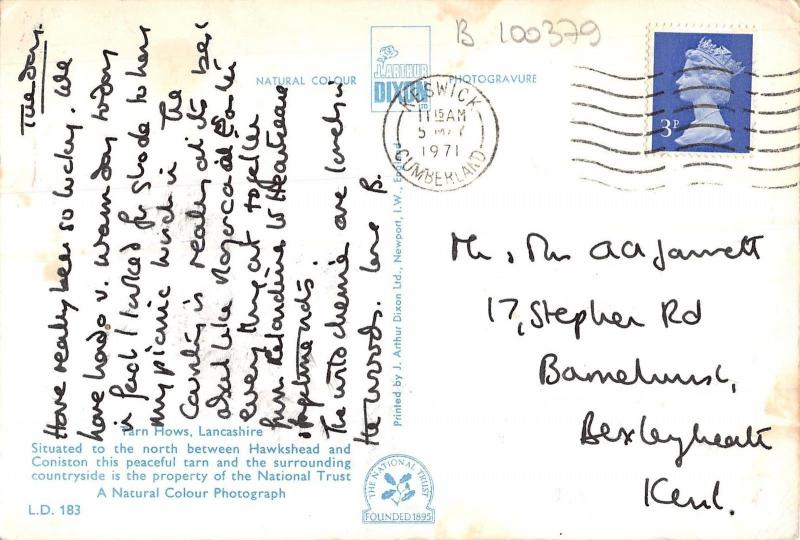 B 100379
NATURAL COLOUR
PHOTOGRAVURE
J. ARTHUR
DIXON
KESWICK
11 15 AM
5 MY
1971
CUMBERLAND
3P
Tuesday.
Have really been so lucky. We
have had a v. warm day today
in fact I looked for shade to have
my picnic lunch in. The
Country is really at its best
about like
everything out together
from Celandine to Heartsease
The wild cherries are lovely in
the woods. Love B.
Mr & Mrs A A Jarrett
17, Stephen Rd
Barnehurst,
Bexleyheath
Kent.
Printed by J. Arthur Dixon Ltd., Newport, I.W., England
Tarn Hows, Lancashire
Situated to the north between Hawkshead and
Coniston this peaceful tarn and the surrounding
countryside is the property of the National Trust
A Natural Colour Photograph
L.D. 183
THE NATIONAL TRUST
FOUNDED 1895